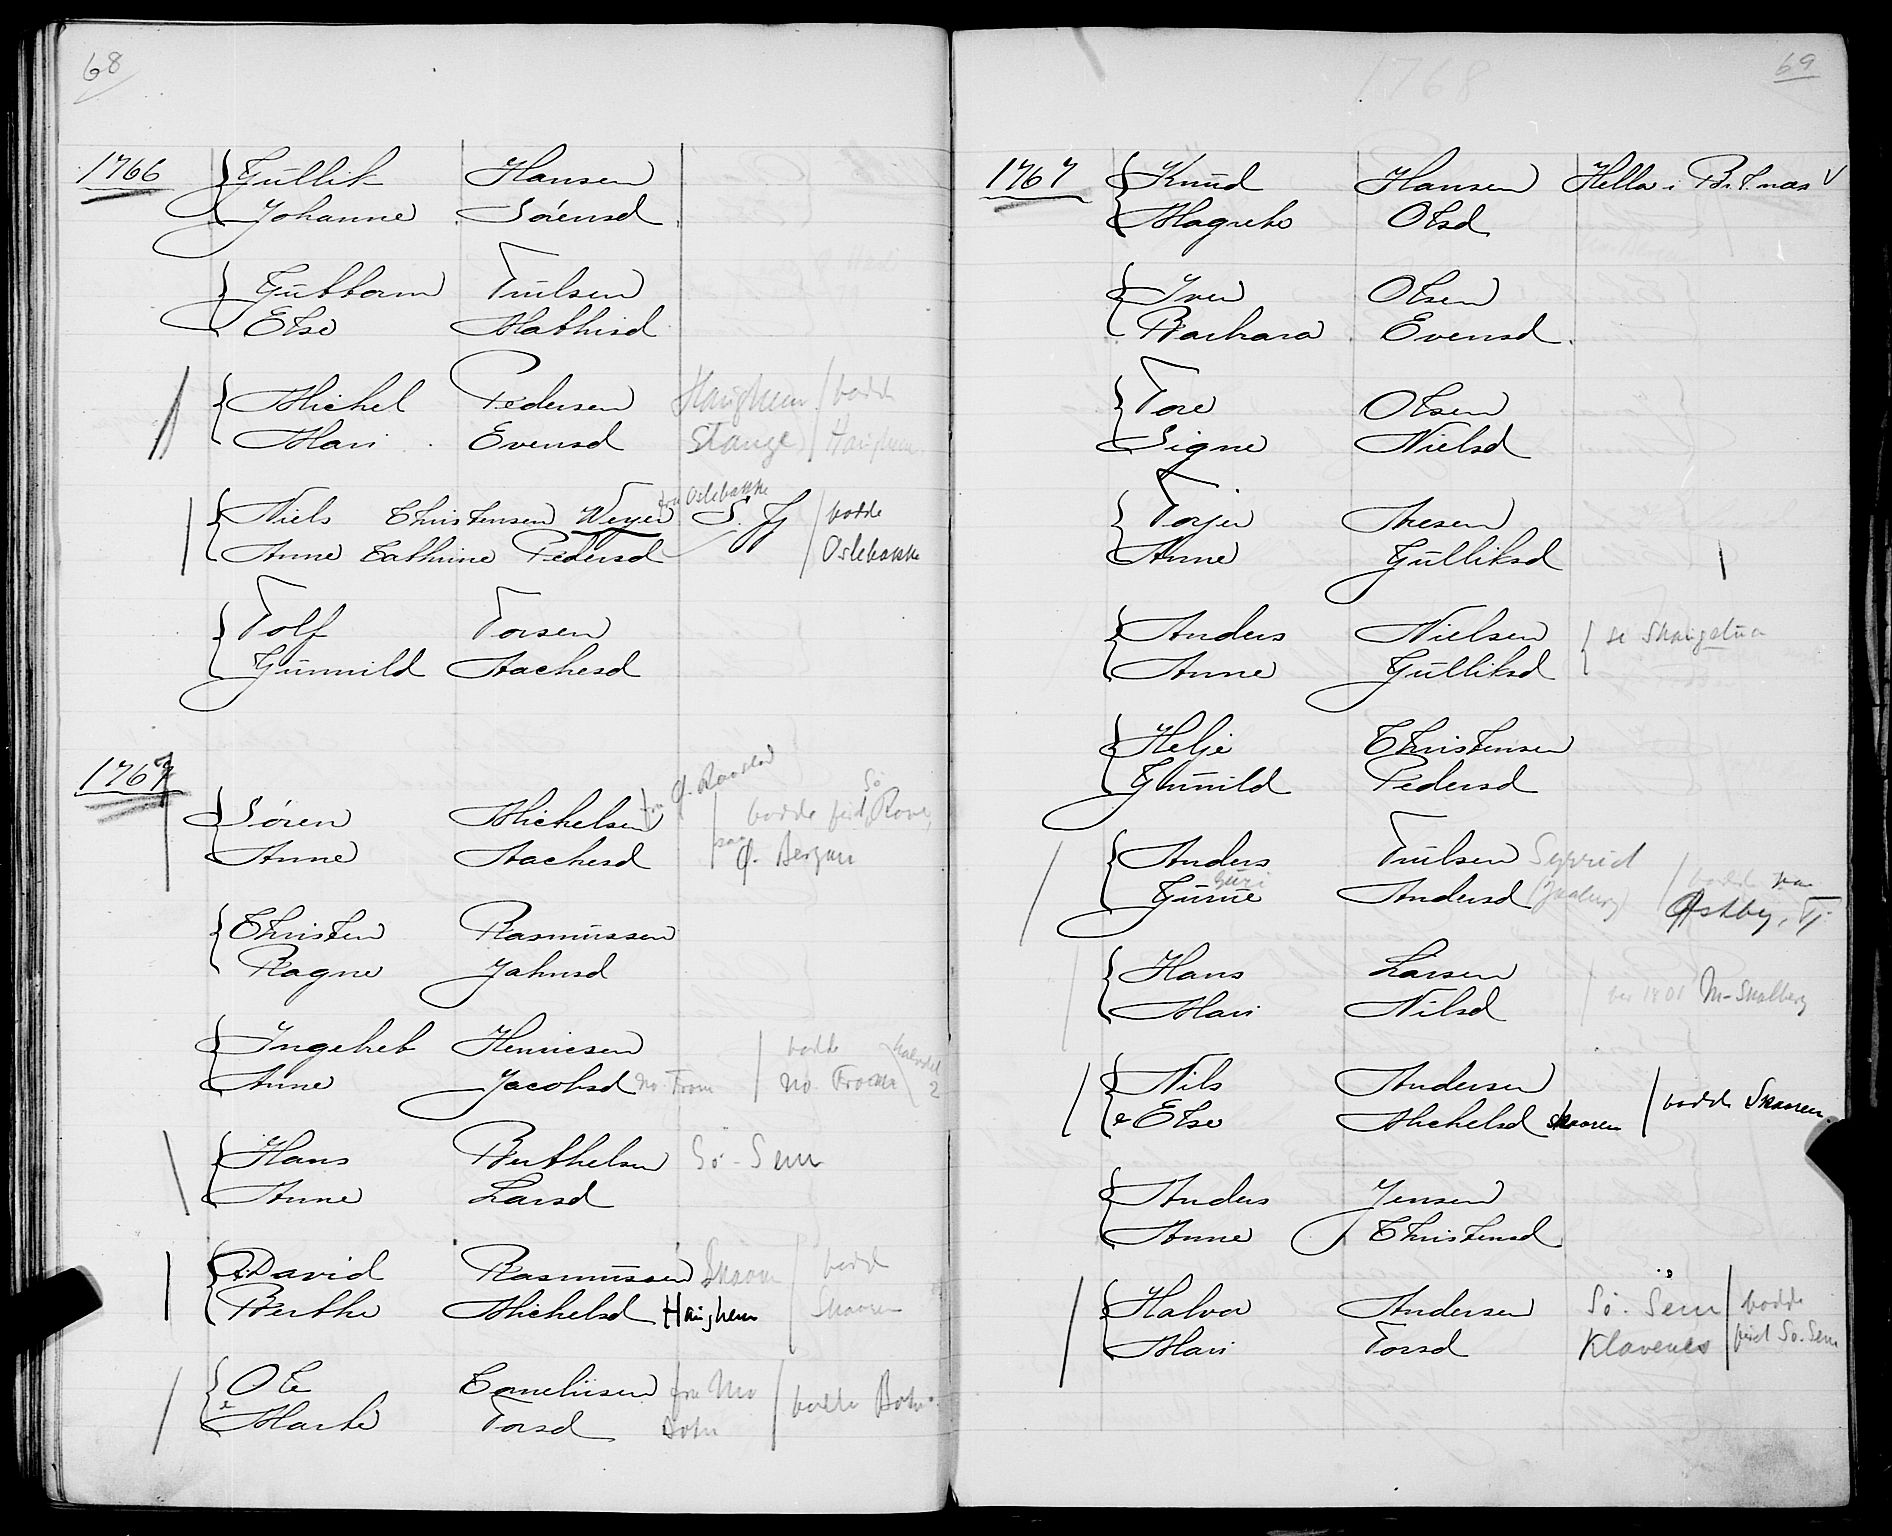 68
1766 Gullik Hansen
Johanne Sörensd.
Guttorm Truilsen
Else Mathisd
Michel Pedersen Haughem / bodde
Mari Evensd Stange / Haughem
fra Oslebakke
Niels Christensen Weyer S. Tj / bodde
Anne Cathrine Pedersd Oslebakke
Tolf Torsen
Gunnild Aachesd
1767
Sören Michelsen fra Ø. bodde först Sö Rove,
Anne Aachesd paa Ø. Bergan
Christen Rasmussen
Ragne Jahnsd
Ingebret Henriesen bodde
Anne Jacobsd no. From no. From 2
Hans Berthelsen Sö-Sem
Anne Larsd
David Rasmussen Skaaren bodd
Berthe Michelsd Haughem Skaaren
Ole Corneliusen fra Mo bodde Botn
e Marte Torsd Botn
1768
69
1767 Knud Hansen Hella i V
Magrete Olsd
Iver Olsen
Barbara Evensd.
Tore Olsen
Signe Nielsd
Torjer Aresen
Anne Gulliksd
Anders Nielsen se Skaugstua
Anne Gulliksd
Helje Christensen
Gunnild Pedersd
Anders Truilsen Syvrid
Guri
Gurue Andersd bodde paa Østby, Tj.
Hans Larsen
Mari Nilsd her 1801 M-Skalberg
Nils Andersen
e Else Michelsd Skaaren bodde Skaaren
Anders Jensen
Anne Christensd
Halvor Andersen Sö. Sem bodde
Mari Torsd Klavenes först Sö. Sem